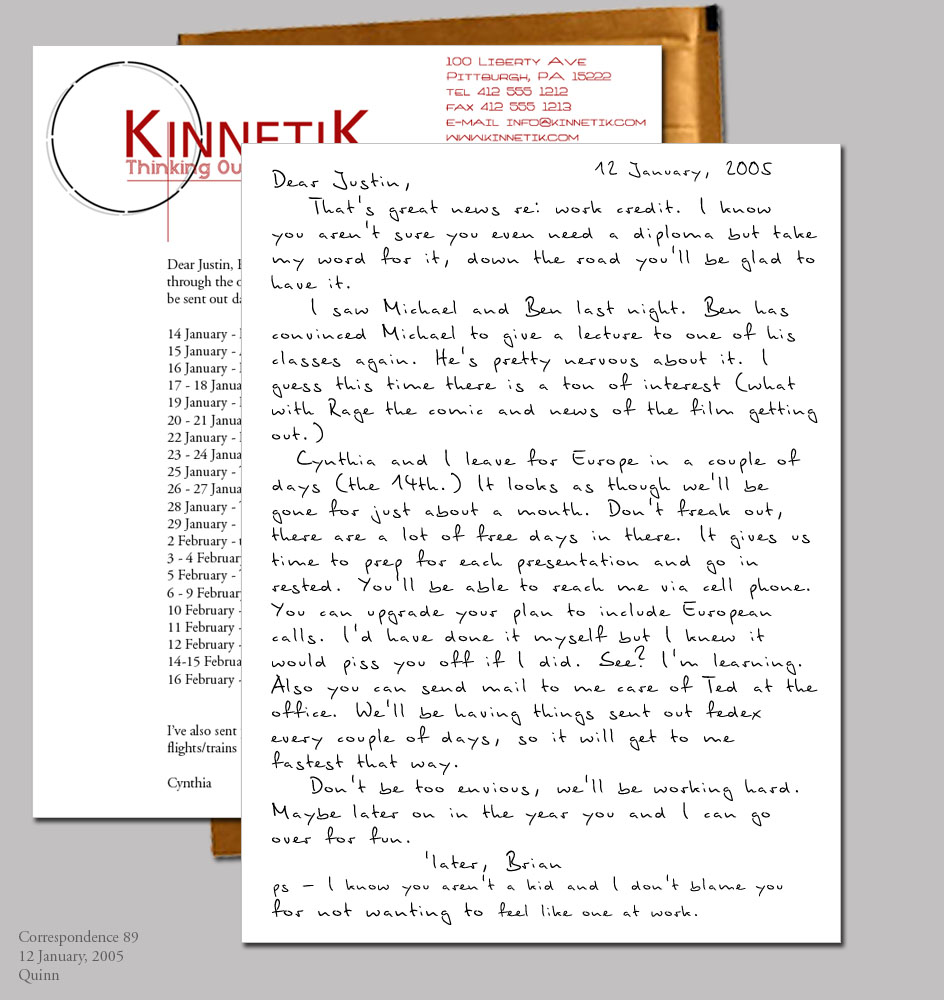 KINNETIK
Thinking Ou
100 Liberty Ave
Pittburgh, PA 15222
tel 412 555 1212
fax 412 555 1213
e-mail info@kinnetik.com
www.kinnetik.com
Dear Justin,
through the
be sent out
14 January -
15 January -
16 January -
17 - 18 Janua
19 January -
20 - 21 Janua
22 January -
23 - 24 Janua
25 January -
26 - 27 Janua
28 January -
29 January -
2 February -
3 - 4 February
5 February -
6 - 9 February
10 February -
11 February -
12 February -
14-15 Februa
16 February -
I've also sent
flights/trains
Cynthia
12 January, 2005
Dear Justin,
That's great news re: work credit. I know
you aren't sure you even need a diploma but take
my word for it, down the road you'll be glad to
have it.
I saw Michael and Ben last night. Ben has
convinced Michael to give a lecture to one of his
classes again. He's pretty nervous about it. I
guess this time there is a ton of interest (what
with Rage the comic and news of the film getting
out.)
Cynthia and I leave for Europe in a couple of
days (the 14th.) It looks as though we'll be
gone for just about a month. Don't freak out,
there are a lot of free days in there. It gives us
time to prep for each presentation and go in
rested. You'll be able to reach me via cell phone.
You can upgrade your plan to include European
calls. I'd have done it myself but I knew it
would piss you off if I did. See? I'm learning.
Also you can send mail to me care of Ted at the
office. We'll be having things sent out fedex
every couple of days, so it will get to me
fastest that way.
Don't be too envious, we'll be working hard.
Maybe later on in the year you and I can go
over for fun.
'later, Brian
ps - I know you aren't a kid and I don't blame you
for not wanting to feel like one at work.
Correspondence 89
12 January, 2005
Quinn